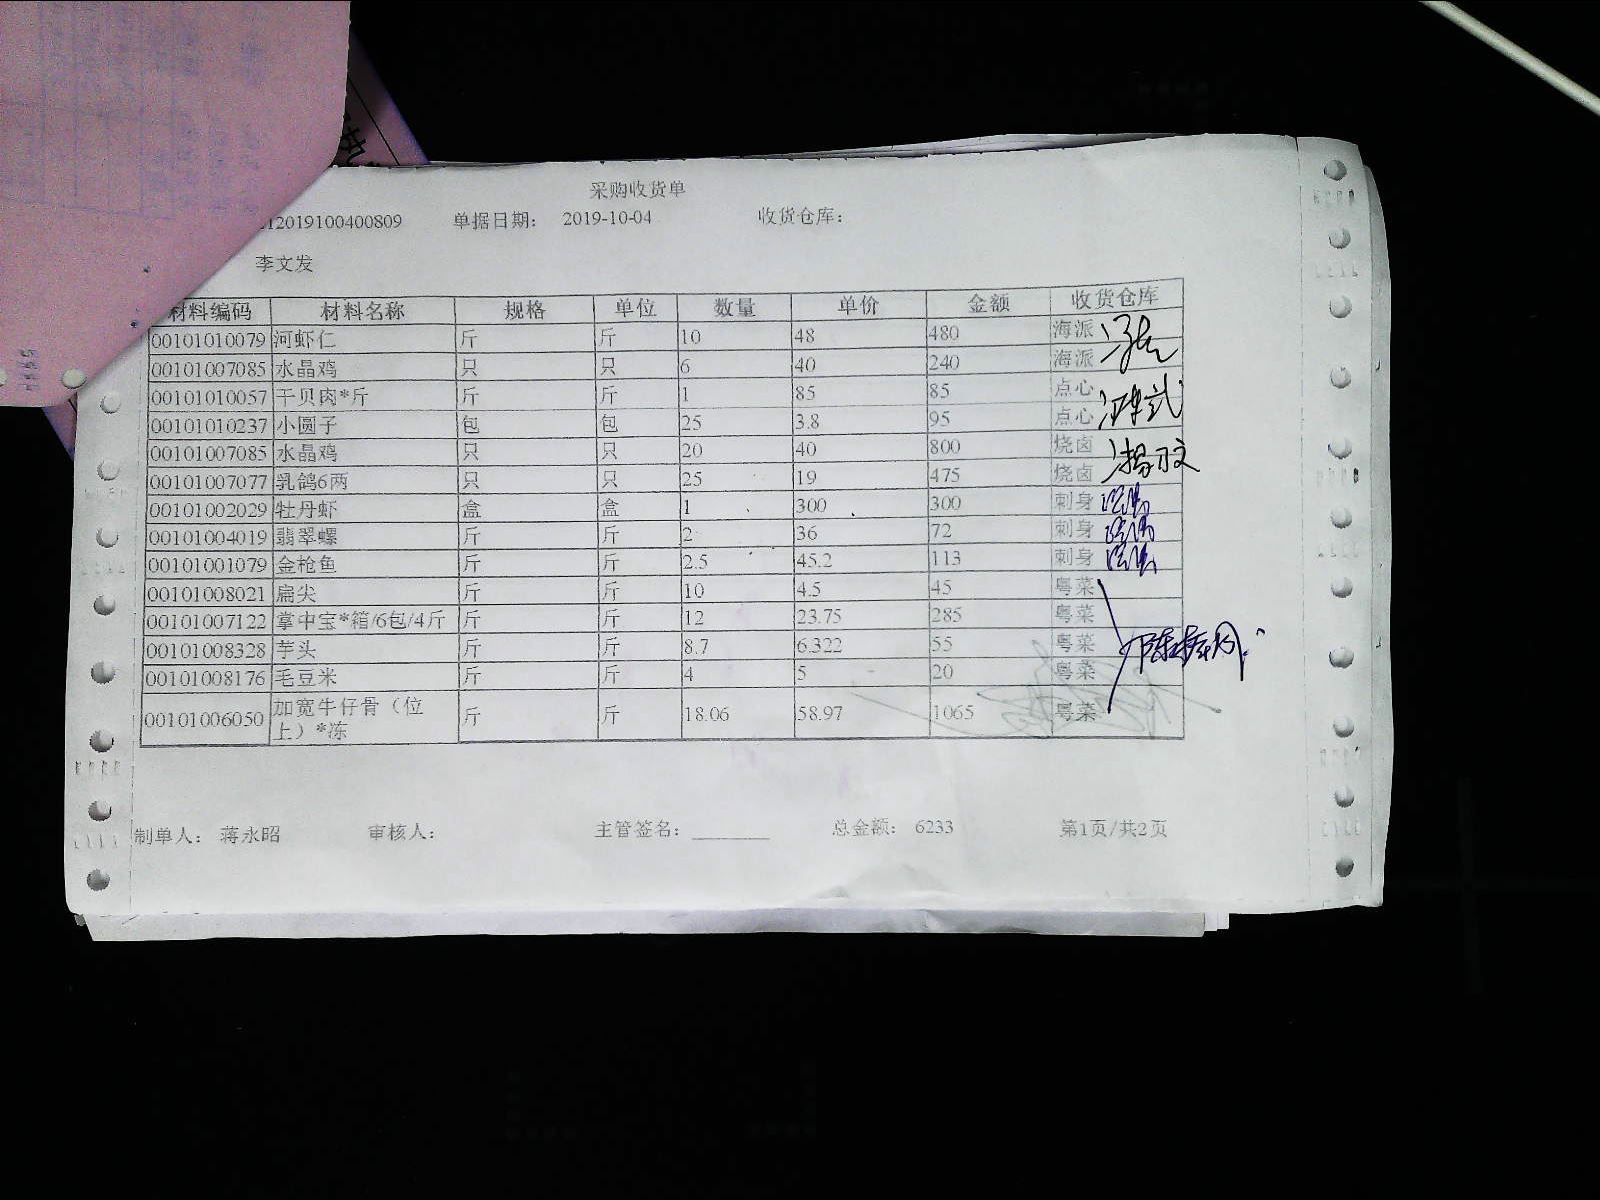 采购收货单
12019100400809 单据日期： 2019-10-04 收货仓库：
李文发
材料编码 材料名称 规格 单位 数量 单价 金额 收货仓库
00101010079 河虾仁 斤 斤 10 48 480 海派
00101007085 水晶鸡 只 只 6 40 240 海派
00101010057 干贝肉*斤 斤 斤 1 85 85 点心
00101010237 小圆子 包 包 25 3.8 95 点心
00101007085 水晶鸡 只 只 20 40 800 烧卤
00101007077 乳鸽6两 只 只 25 19 475 烧卤
00101002029 牡丹虾 盒 盒 1 300 300 刺身
00101004019 翡翠螺 斤 斤 2 36 72 刺身
00101001079 金枪鱼 斤 斤 2.5 45.2 113 刺身
00101008021 扁尖 斤 斤 10 4.5 45 粤菜
00101007122 掌中宝*箱/6包/4斤 斤 斤 12 23.75 285 粤菜
00101008328 芋头 斤 斤 8.7 6.322 55 粤菜
00101008176 毛豆米 斤 斤 4 5 20 粤菜
00101006050 加宽牛仔骨（位上）*冻 斤 斤 18.06 58.97 1065 粤菜
制单人： 蒋永昭 审核人： 主管签名： 总金额： 6233 第1页/共2页